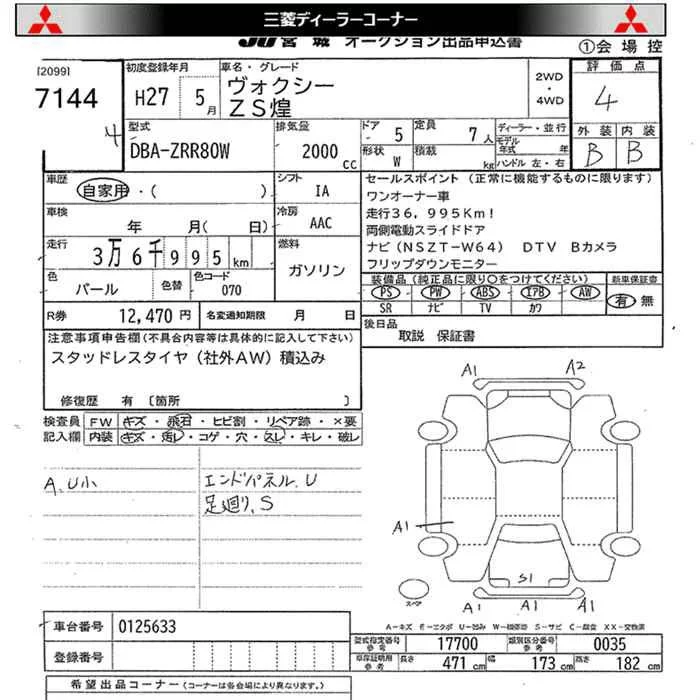 三菱ディーラーコーナー
JU宮城 オークション出品申込書
①会場控
[2099]
7144
4
初度登録年月
H27 5月
車名・グレード
ヴォクシー
ZS煌
2WD
・
4WD
評価点
4
外装 内装
B B
型式
DBA-ZRR80W
排気量
2000 CC
ドア 5
定員 7人
形状 W
積載 kg
ディーラー・並行
モデル年式 年
ハンドル 左・右
車歴
自家用・( )
シフト
IA
車検
年 月( 日)
冷房
AAC
走行
3万6千995km
燃料
ガソリン
色
パール
色替
色コード
070
R券 12,470円
名変通知期限 月 日
セールスポイント (正常に機能するものに限ります)
ワンオーナー車
走行36,995Km!
両側電動スライドドア
ナビ(NSZT-W64) DTV Bカメラ
フリップダウンモニター
装備品(純正品に限り〇をつけてください)
PS・PW・ABS・エアB・AW
SR ナビ TV カワ
新車保証書
有 無
後日品
取説 保証書
注意事項申告欄(不具合内容等は具体的に記入して下さい)
スタッドレスタイヤ(社外AW)積込み
修復歴 有 〔箇所 〕
検査員記入欄
FW キズ・飛石・ヒビ割・リペア跡・×要
内装 キズ・汚レ・コゲ・穴・スレ・キレ・破レ
A、U小
エンドパネル、U
足廻り、S
A1 A2
A1
S1
スペア
A1 A1 A1
A-キズ E-エクボ U-凹み W-補修跡 S-サビ C-腐食 XX-交換済
車台番号 0125633
登録番号
型式指定番号 参考 17700
類別区分番号 参考 0035
車庫証明用 参考 長さ 471cm 幅 173cm 高さ 182cm
希望出品コーナー(コーナーは各会場により異なります)